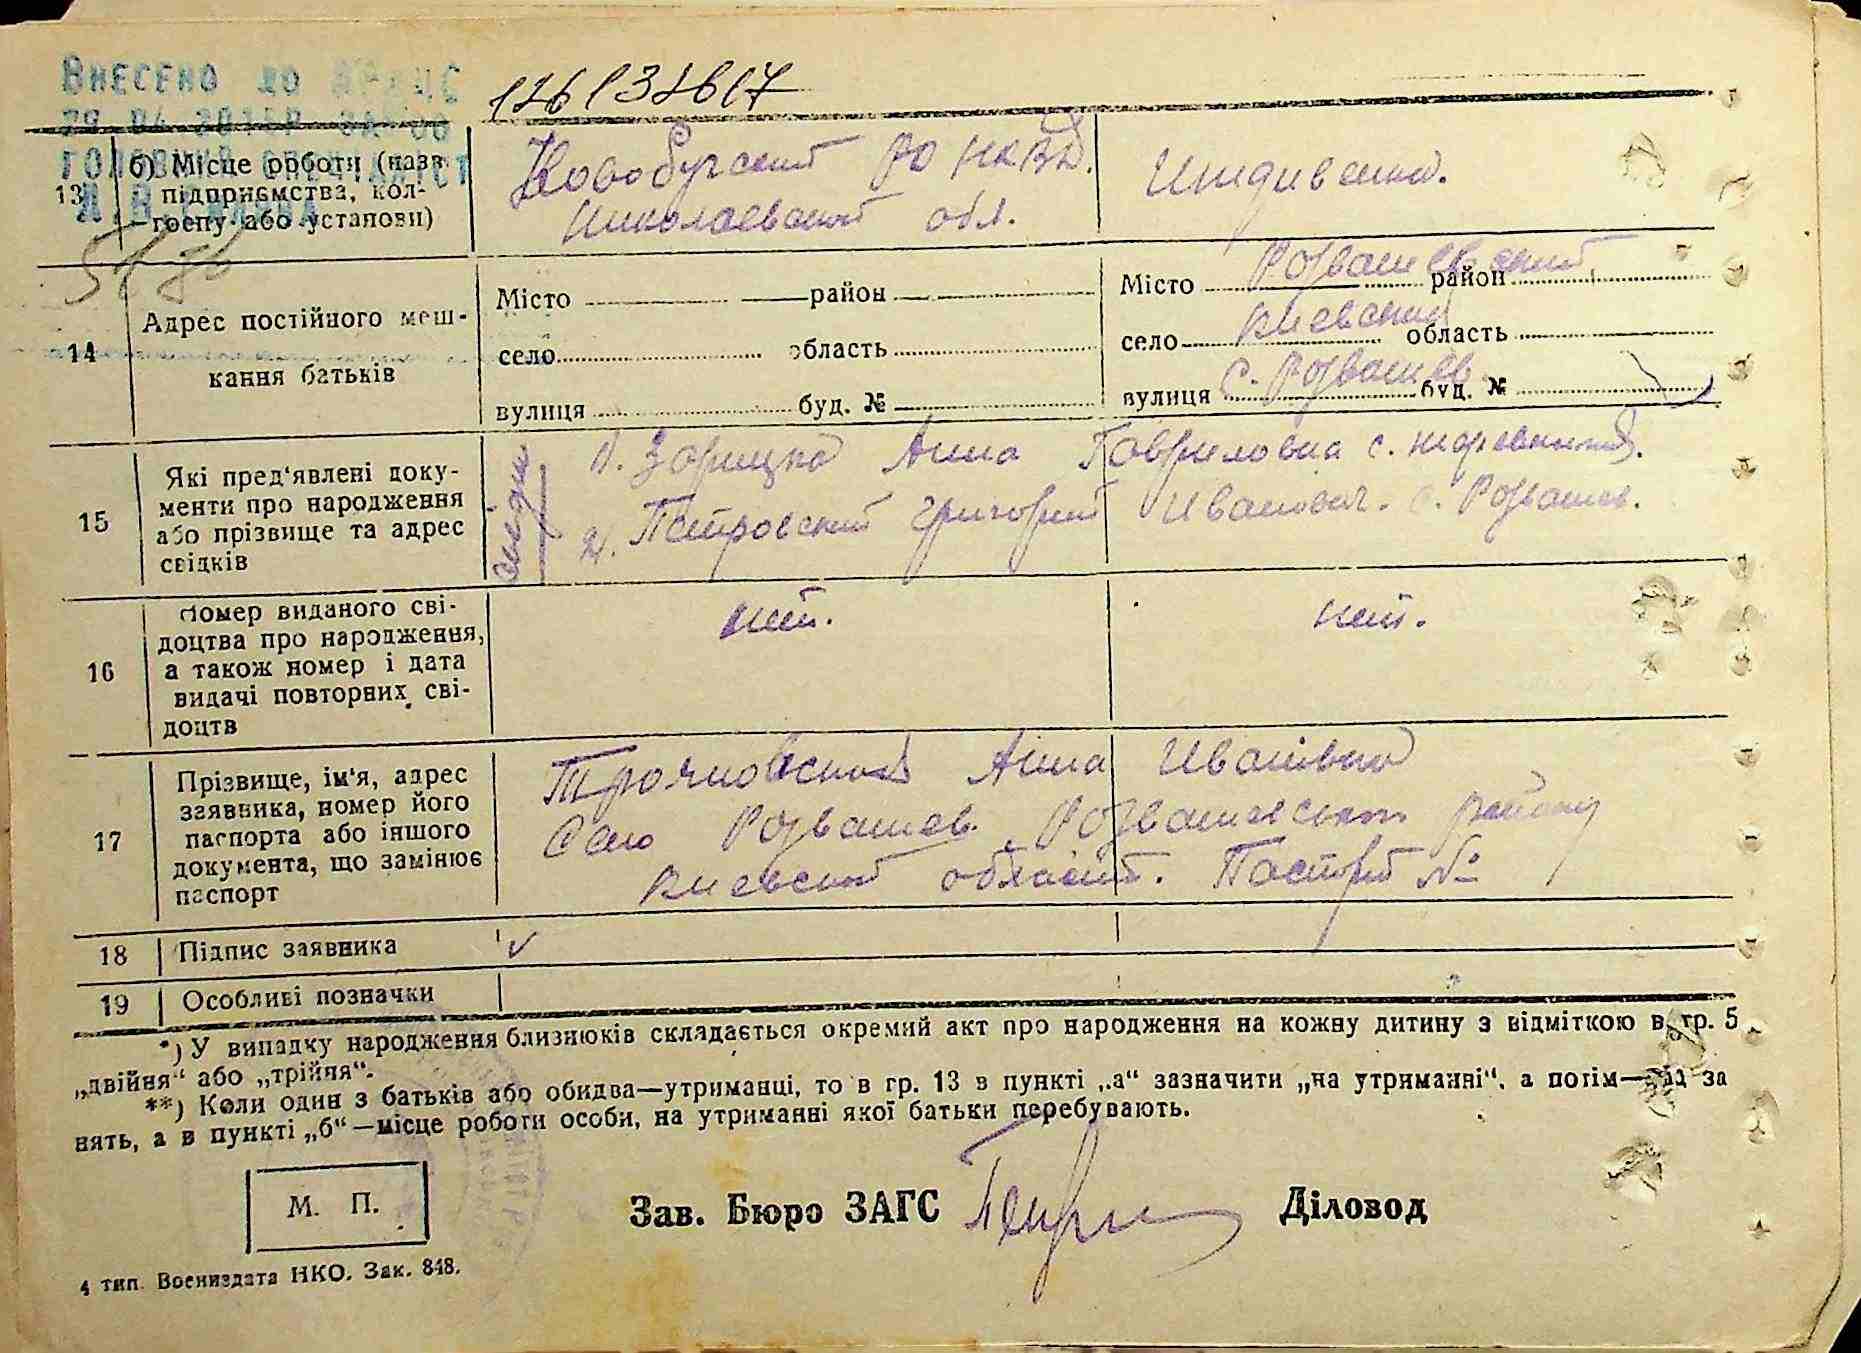 Внесено до
126132617
13 б) Місце роботи (назв
підприємства, кол-
госпу або установи)
Новобугский РО НКВД.
Николаевской обл.
Иждивенка.
14 Адрес постійного меш-
кання батьків
Місто район
село область
вулиця буд. №
Місто Розважевский район
село Киевский область
вулиця с. Розважев буд. №
15 Які пред'явлені доку-
менти про народження
або прізвище та адрес
свідків
Свідки
1. Зарицка Анна Гавриловна с.
2. Петровский Григорий Иванович. с. Розважев.
16 Номер виданого сві-
доцтва про народження,
а також номер і дата
видачі повторних сві-
доцтв
нет.
нет.
17 Прізвище, ім'я, адрес
заявника, номер його
паспорта або іншого
документа, що замінює
паспорт
Анна Ивановна
Село Розважев. Розважевского району
Киевской области. Паспорт №
18 Підпис заявника
19 Особливі позначки
*) У випадку народження близнюків складається окремий акт про народження на кожну дитину з відміткою в гр. 5
„двійня“ або „трійня“.
**) Коли один з батьків або обидва—утриманці, то в гр. 13 в пункті „а“ зазначити „на утриманні“, а потім— за
нять, а в пункті „б“—місце роботи особи, на утриманні якої батьки перебувають.
М. П.
Зав. Бюро ЗАГС
Діловод
4 тип. Воениздата НКО. Зак. 848.